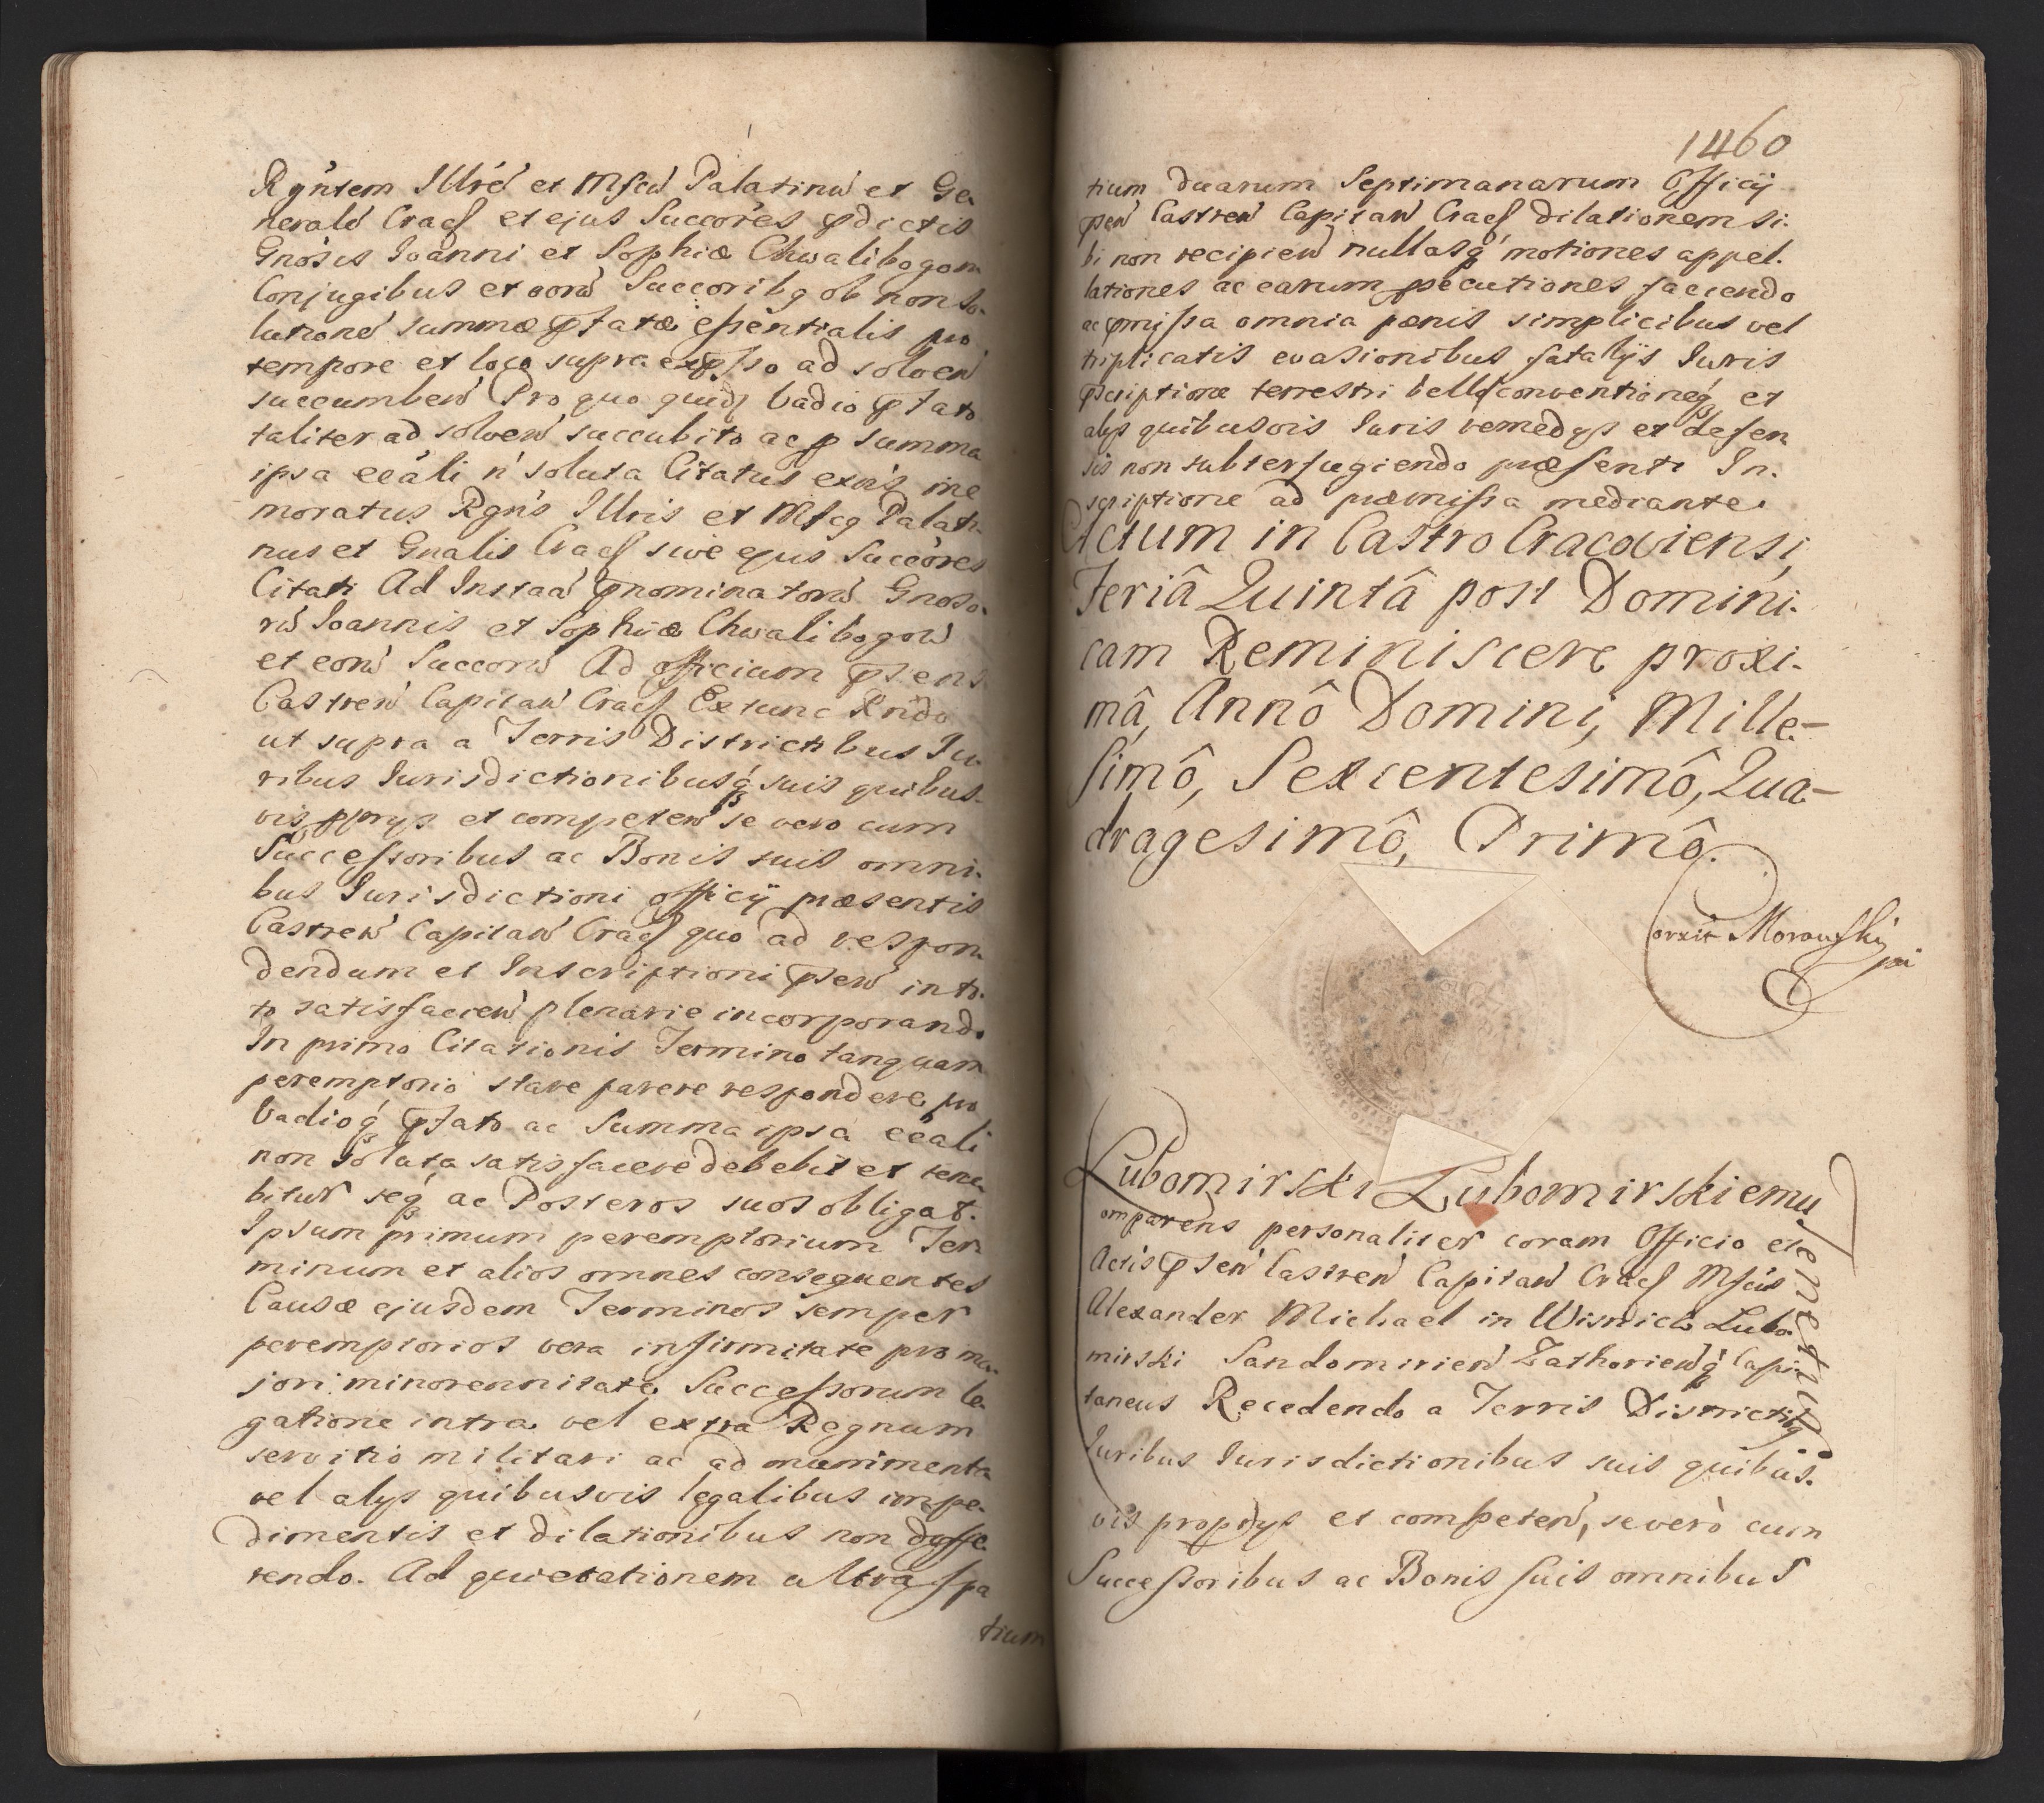 Rgñtem Illrẽ et Mfcũ Palatinũ et Ge-
neralẽ Cracẽ et ejus Succõres pdictis
Gnõsis Joanni et Sophiæ Chwalibogom
Conjugibus et eorũ Succoribq ob non so-
lutionẽ summæ pfatæ essentialis pro
tempore et loco supra expsso ad solveñ
succumbeñ Pro quo quidẽ Vadio pfato
taliter ad solveñ succubito ac p summa
ipsa eeãli ñ soluta Citatus
moratus Rgñs Illris et Mfcq Palati-
nus et Gnalis Cracẽ sive ejus Succõres
Citati Ad Instaã pnominatorũ Gnoso-
rũ Joannis et Sophiæ Chwalibogow
et eorũ Succorũ Ad officium psens
Castreñ Capitañ Cracẽ Extunc Rñdo
ut supra a Terris Districtibus Ju-
ribus Jurisdictionibusq suis quibus-
vis pprys et competeñ se vero cum
Successoribus ac Bonis suis omni-
bus Jurisdictioni officij præsentis
Castreñ Capitañ Cracẽ quo ad respon-
dendum et Inscriptioni pseñ in to-
to satisfacieñ plenarie incorporando
In primo Citationis Termino tanquam
peremptorio stare parere respondere, pro
Vadioq pfato ac Summa ipsa eeãli
non soluta satisfacere debebit et tene-
bitur seq ac Posteros suos obligat.
Ipsum primum peremptorium Ter-
minum et alios omnes consequentes
Causæ ejusdem Terminos semper
peremptorios vera infirmitate pro ma-
jori minorennitate Successorum le-
gatione intra vel extra Regnum
servitio militari ac ad munimenta
vel alys quibusvis legalibus impe-
dimentis et dilationibus non dyffe-
rendo. Ad quietationem ultra spa
tium
1460
tium duarum Septimanarum Officij
pseñ Castreñ Capitañ Cracẽ dilationem si-
bi non recipieñ nullasq motiones appel-
lationes ac earum psecutiones faciendo
ac pmissa omnia pœnis simplicibus vel
triplicatis evasionibus fatalijs Juris
pscriptione terrestri bello conventioneq et
alys quibusvis Juris remedys et defen-
sis non subterfugiendo præsenti In-
scriptione ad præmissa mediante.
Actum in Castro Cracoviensi,
Feriâ Quintâ post Domini-
cam Reminiscere proxi-
mâ, Annô Domini, Mille-
simô, Sexcentesimô, Qua-
dragesimô, Primô.
Corxit Morawski
Lubomirski Lubomirskiemu
Comparens personaliter coram Officio et
Actis pseñ Castreñ Capitañ Cracẽ Mfcus
Alexander Michael in Wisnicz Lubo-
mirski Sandomirieñ Zathorieñq Capi-
taneus Recedendo a Terris Districtibq
Juribus Jurisdictionibus suis quibus-
vis proprys et competeñ, se verò cum
Successoribus ac Bonis suis omnibus